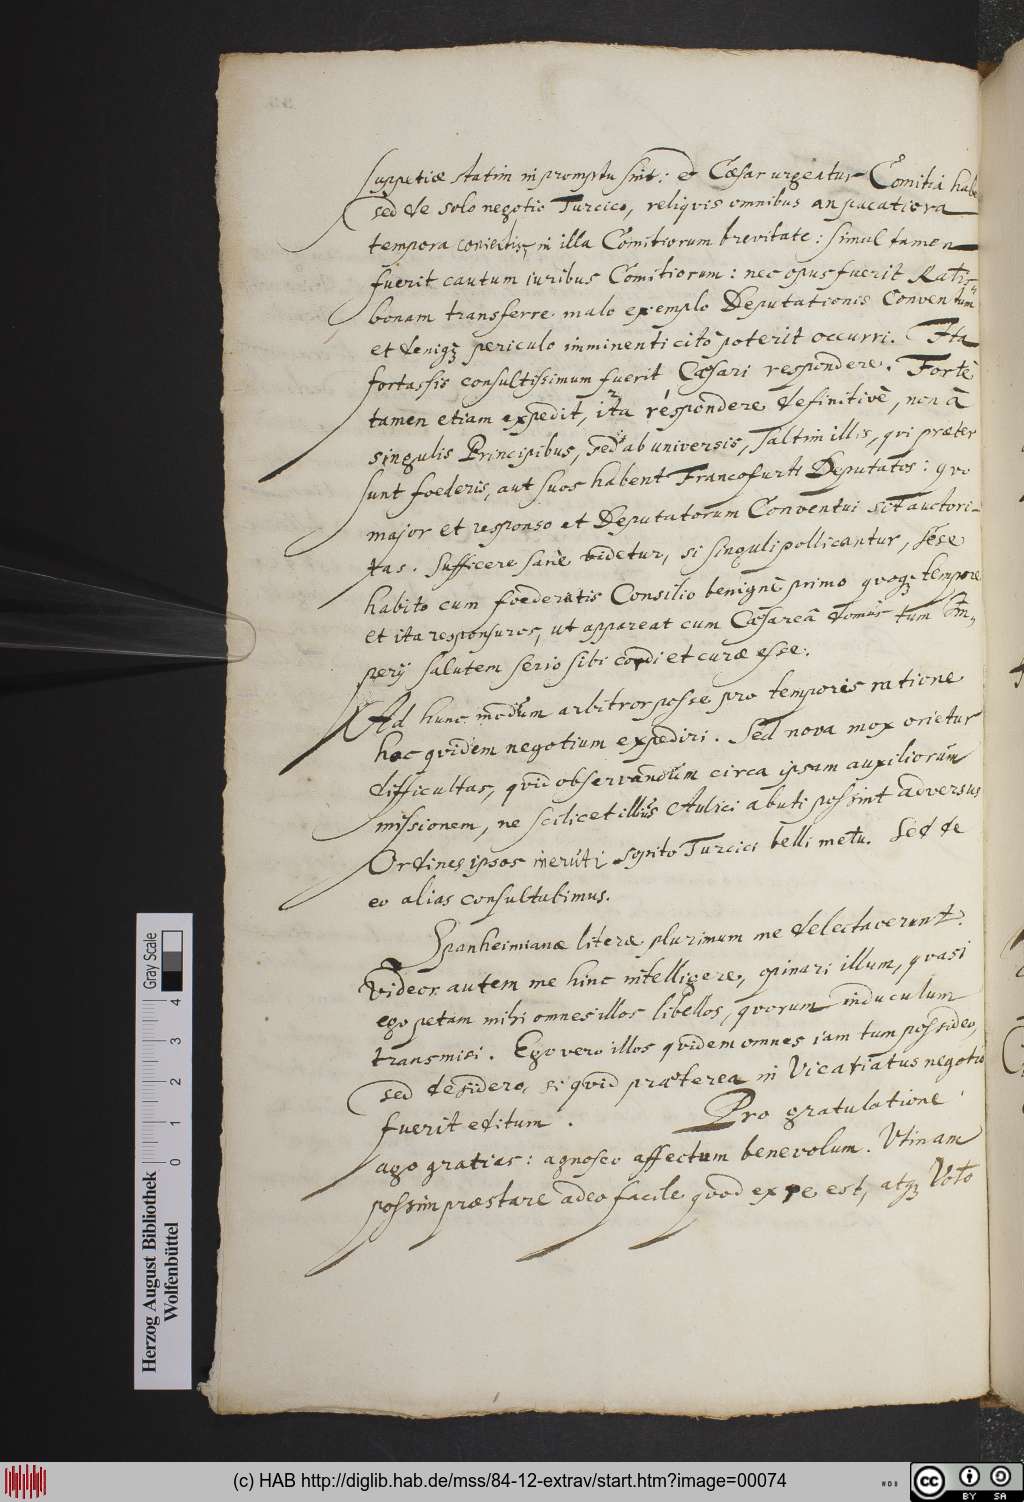 suppetiæ statim in promptu sint: et Cæsar urgeatur Comitia habe
sed de solo negotio Turcico, reliqvis omnibus an pacatiora
tempora coniectis, in illa Comitiorum brevitate: simul tamen
fuerit cautum iuribus Comitiorum: nec opus fuerit Ratis-
bonam transferre malo exemplo Deputationis Conventum
et deniqȝ periculo imminenti citò poterit occurri. Ita
fortassis consultissimum fuerit Cæsari respondere. Fortè
tamen etiam expedit, ita respondere definitivè, non à
singulis Principibus, sed ab universis, saltim illis, qvi præter
sunt foederis, aut suos habent Francofurti Deputatos: qvo
major et responso et Deputatorum Conventui sit auctori-
tas. Sufficere sanè videtur, si singuli pollicantur, sese
habito cum foederatis Consilio benignè primo qvoqȝ tempore
et ita responsuros, ut appareat cum Cæsareâ domus tum Im-
perij salutem serio sibi cordi et curæ esse.
Ad hunc modum arbitror posse pro temporis ratione
hoc qvidem negotium expediri. Sed nova mox orietur
difficultas, qvid observandum circa ipsam auxiliorum
missionem, ne scilicet illius Aulici abuti possint adversus
Ordines ipsos sopito Turcici belli metu. Sed de
eo alias consultabimus.
Spanheimianæ literæ plurimum me delectaverunt.
Videor autem me hinc intelligere, opinari illum, qvasi
ego petam mihi omnes illos libellos, qvorum induculum
transmisi. Ego vero illos qvidem omnes iam tum possideo,
sed desidero, si qvid præterea in Vicariatus negotio
fuerit editum. Pro gratulatione
ago gratias: agnosco affectum benevolum. Utinam
possim præstare adeo facile qvod ex re est, atqȝ Voto
Herzog August Bibliothek
Wolfenbüttel
0 1 2 3 4
Gray Scale
(c) HAB http://diglib.hab.de/mss/84-12-extrav/start.htm?image=00074
cc BY SA